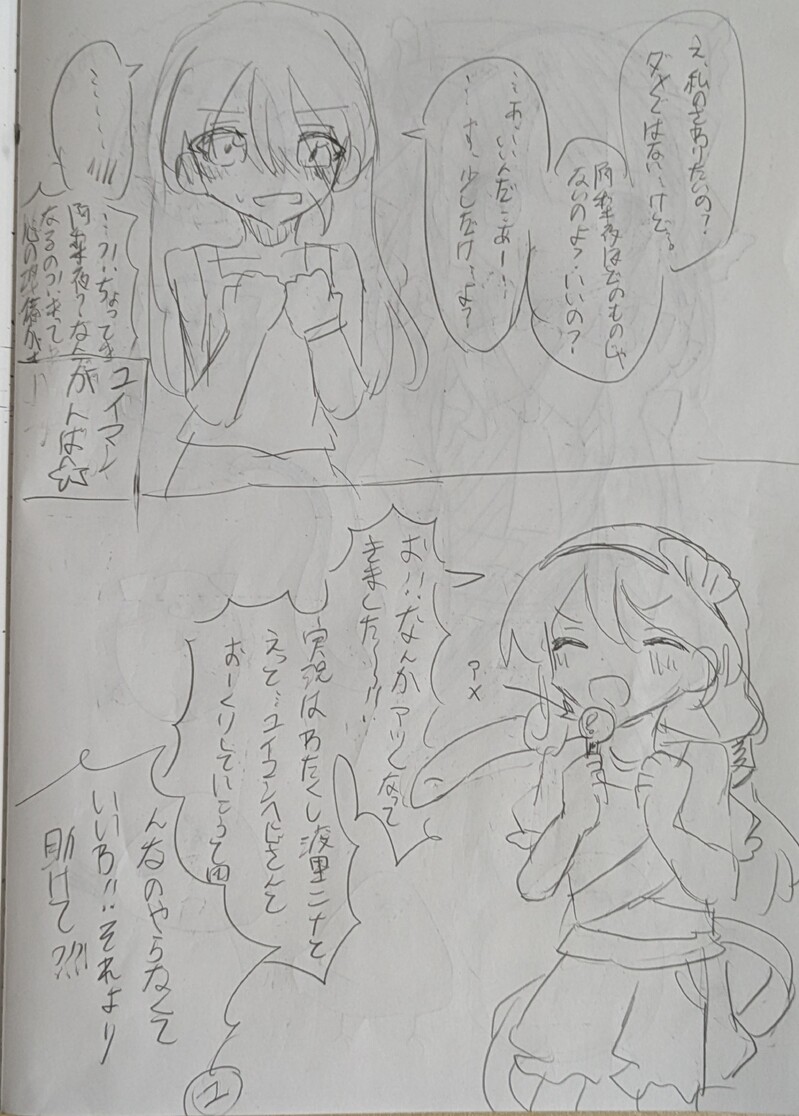 え、私のさわりたいの?
ダメではない…けど…。
阿梨夜はどのものじゃ
ないのよ?いいの?
…あ、いいんだ…あー…
…す、少しだけ…よ?
…………
…?!いちょってき
阿梨夜?なん
なるの?!まって
心の準備がぁ
ユイマン
がんば☆
お!!なんかアツくなって
きました〜!!
実況はわたくし渡里ニナと
えっと…ユイマンヘビさんで
おーくりしていこうって
アメ
んなのやらなくて
いいわ!!それより
助けて?!!
ユ